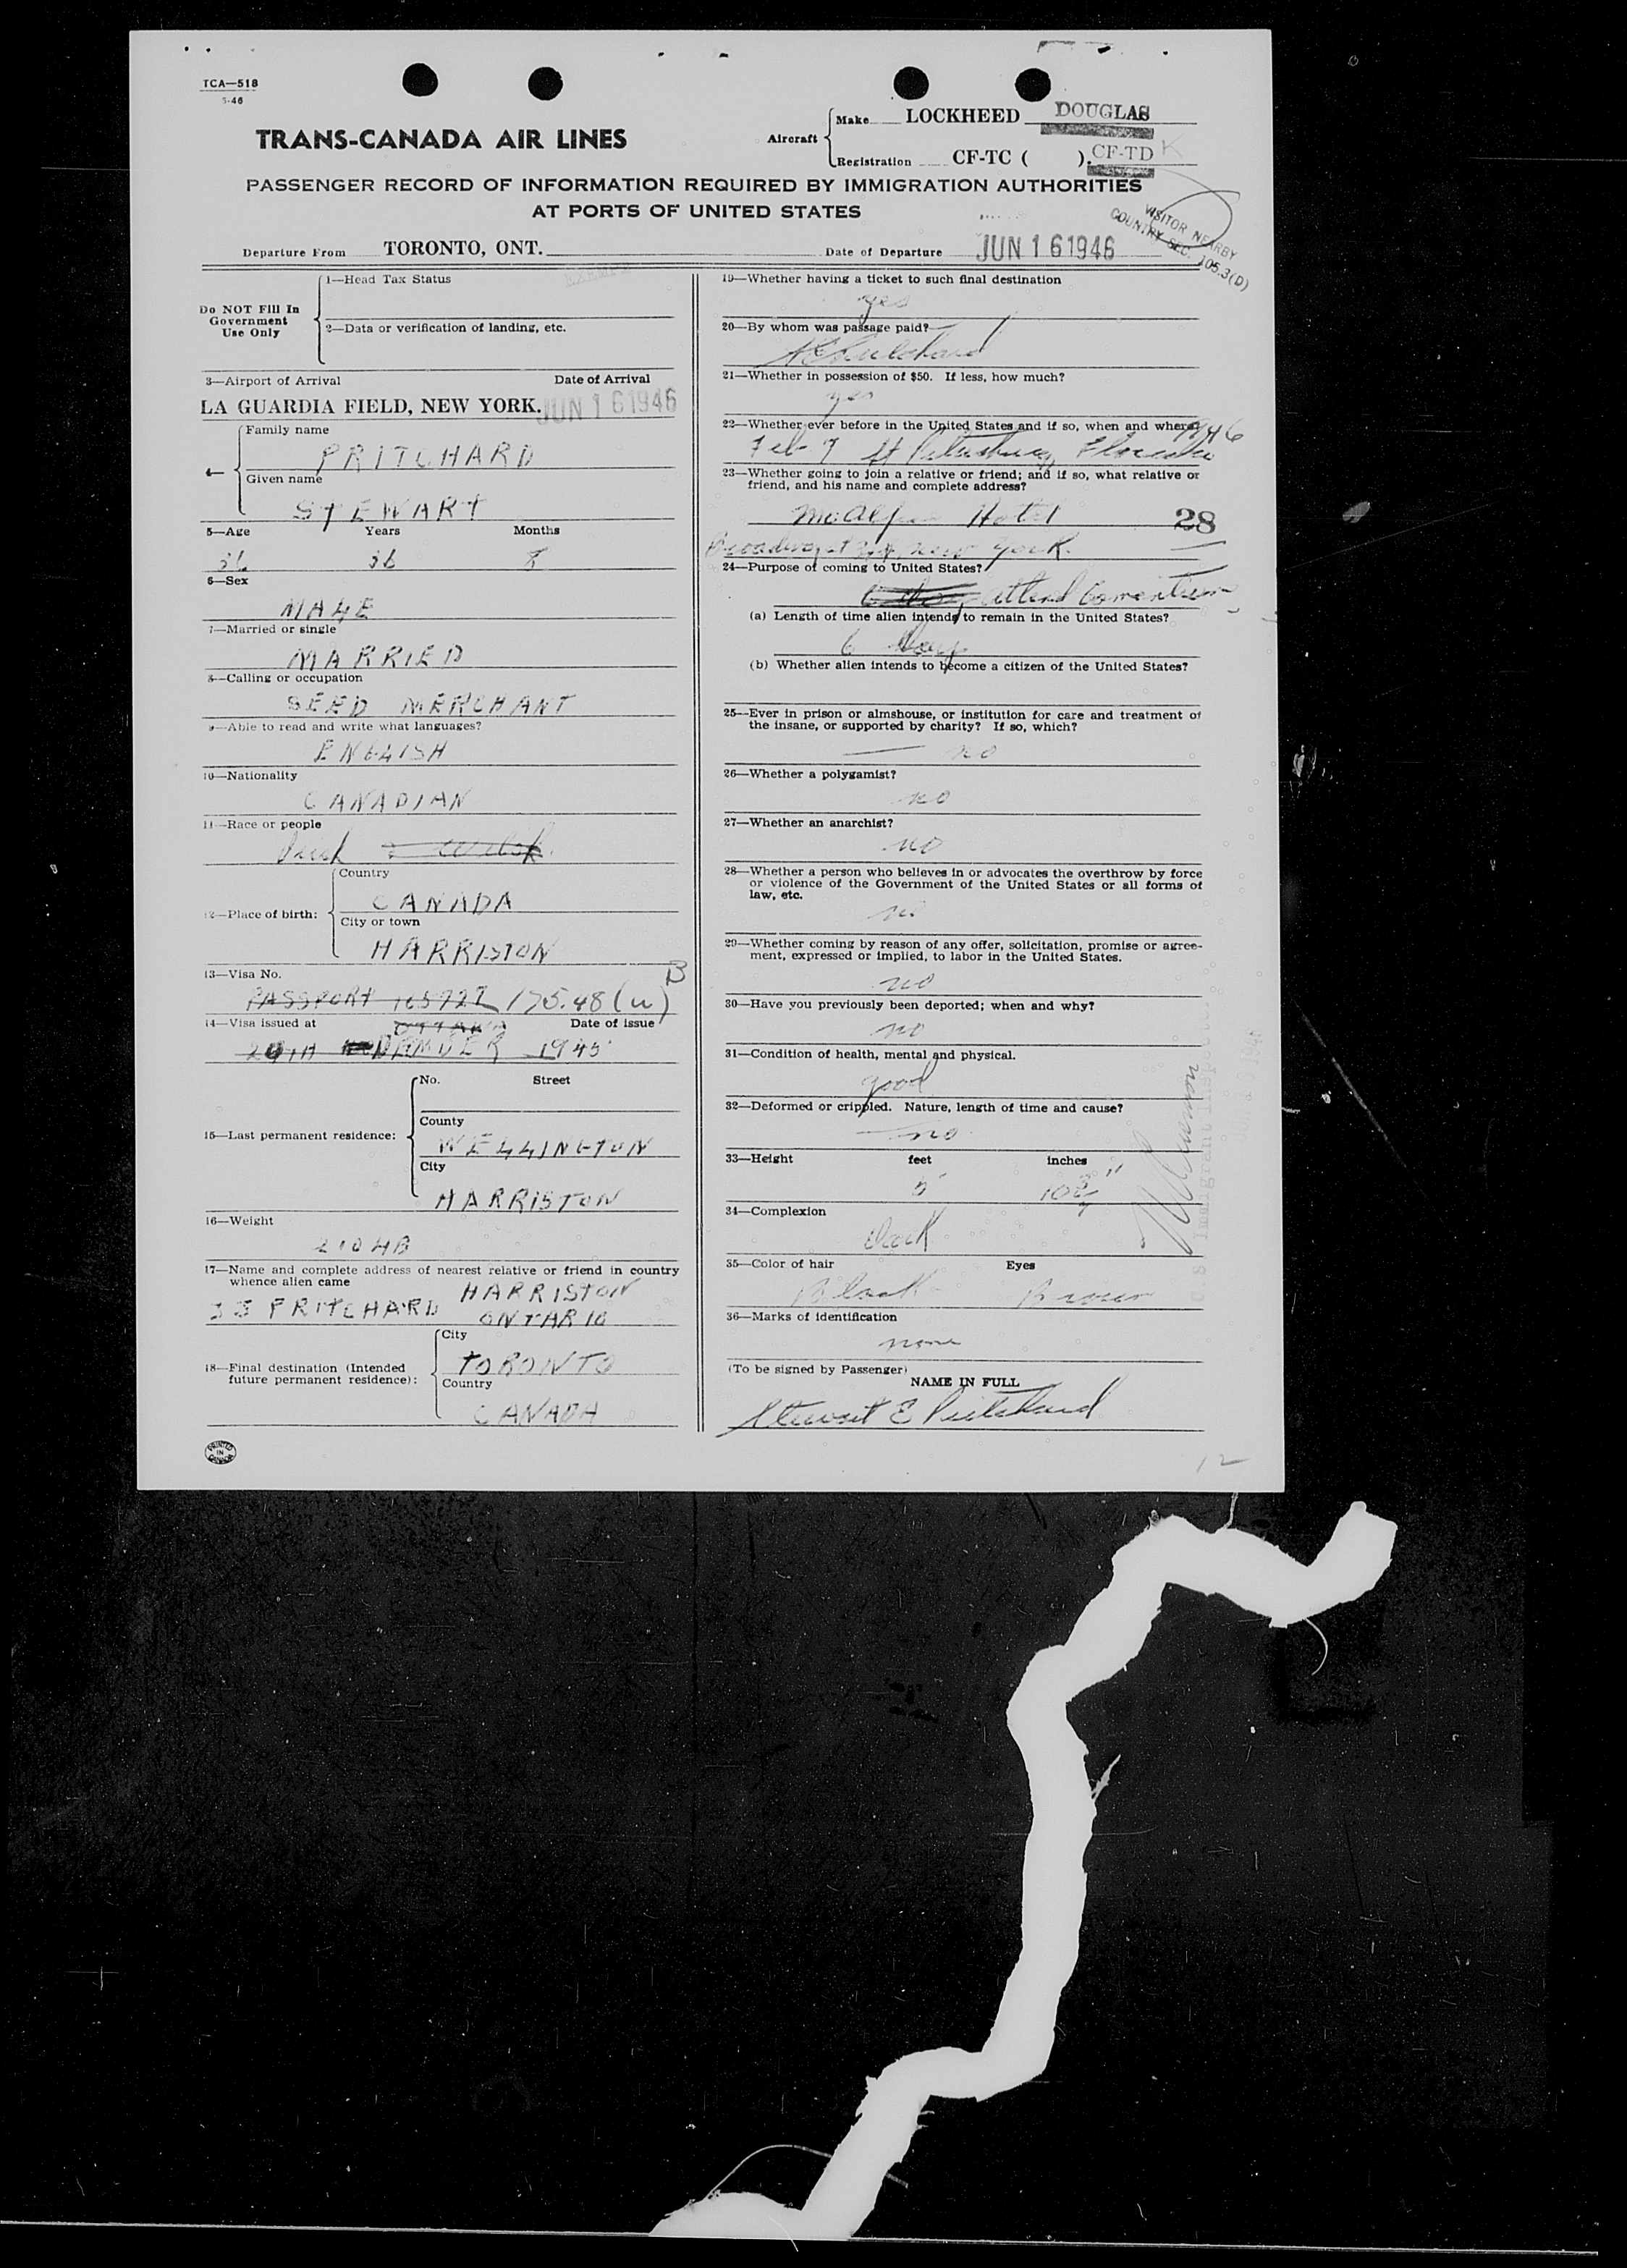 TCA—518
5-46
TRANS-CANADA AIR LINES
Aircraft
Make LOCKHEED DOUGLAS
Registration CF-TC ( ). CF-TD K
PASSENGER RECORD OF INFORMATION REQUIRED BY IMMIGRATION AUTHORITIES
AT PORTS OF UNITED STATES
VISITOR NEARBY
COUNTRY SEC. 105.3(D)
Departure From TORONTO, ONT. Date of Departure JUN 16 1946
Do NOT Fill In
Government
Use Only
1—Head Tax Status
2—Data or verification of landing, etc.
3—Airport of Arrival Date of Arrival
LA GUARDIA FIELD, NEW YORK. JUN 16 1946
Family name
PRITCHARD
4—
Given name
STEWART
5—Age Years Months
36 36 8
6—Sex
MALE
7—Married or single
MARRIED
8—Calling or occupation
SEED MERCHANT
9—Able to read and write what languages?
ENGLISH
10—Nationality
CANADIAN
11—Race or people
Irish & Welsh.
12—Place of birth:
Country
CANADA
City or town
HARRISTON
13—Visa No. B
PASSPORT 165727 175.48 (w)
14—Visa issued at OTTAWA Date of issue
1945
15—Last permanent residence:
No. Street
County
WELLINGTON
City
HARRISTON
16—Weight
210 LB
17—Name and complete address of nearest relative or friend in country
whence alien came
HARRISTON
JJ PRITCHARD ONTARIO
18—Final destination (Intended
future permanent residence):
City
TORONTO
Country
CANADA
PRINTED
IN
CANADA
19—Whether having a ticket to such final destination
yes
20—By whom was passage paid?
Pritchard
21—Whether in possession of $50. If less, how much?
yes
22—Whether ever before in the United States and if so, when and where? 1946
Feb 7 St Petersburg Florida
23—Whether going to join a relative or friend; and if so, what relative or
friend, and his name and complete address?
McAlpin Hotel 28
Broadway at New York.
24—Purpose of coming to United States?
attend Convention
(a) Length of time alien intends to remain in the United States?
6 days
(b) Whether alien intends to become a citizen of the United States?
25—Ever in prison or almshouse, or institution for care and treatment of
the insane, or supported by charity? If so, which?
no
26—Whether a polygamist?
no
27—Whether an anarchist?
no
28—Whether a person who believes in or advocates the overthrow by force
or violence of the Government of the United States or all forms of
law, etc.
no
29—Whether coming by reason of any offer, solicitation, promise or agree-
ment, expressed or implied, to labor in the United States.
no
30—Have you previously been deported; when and why?
no
31—Condition of health, mental and physical.
good
32—Deformed or crippled. Nature, length of time and cause?
no
33—Height feet inches
5' 10 3/4"
34—Complexion
Dark
35—Color of hair Eyes
Black Brown
36—Marks of identification
none
(To be signed by Passenger)
NAME IN FULL
Stewart E Pritchard
12